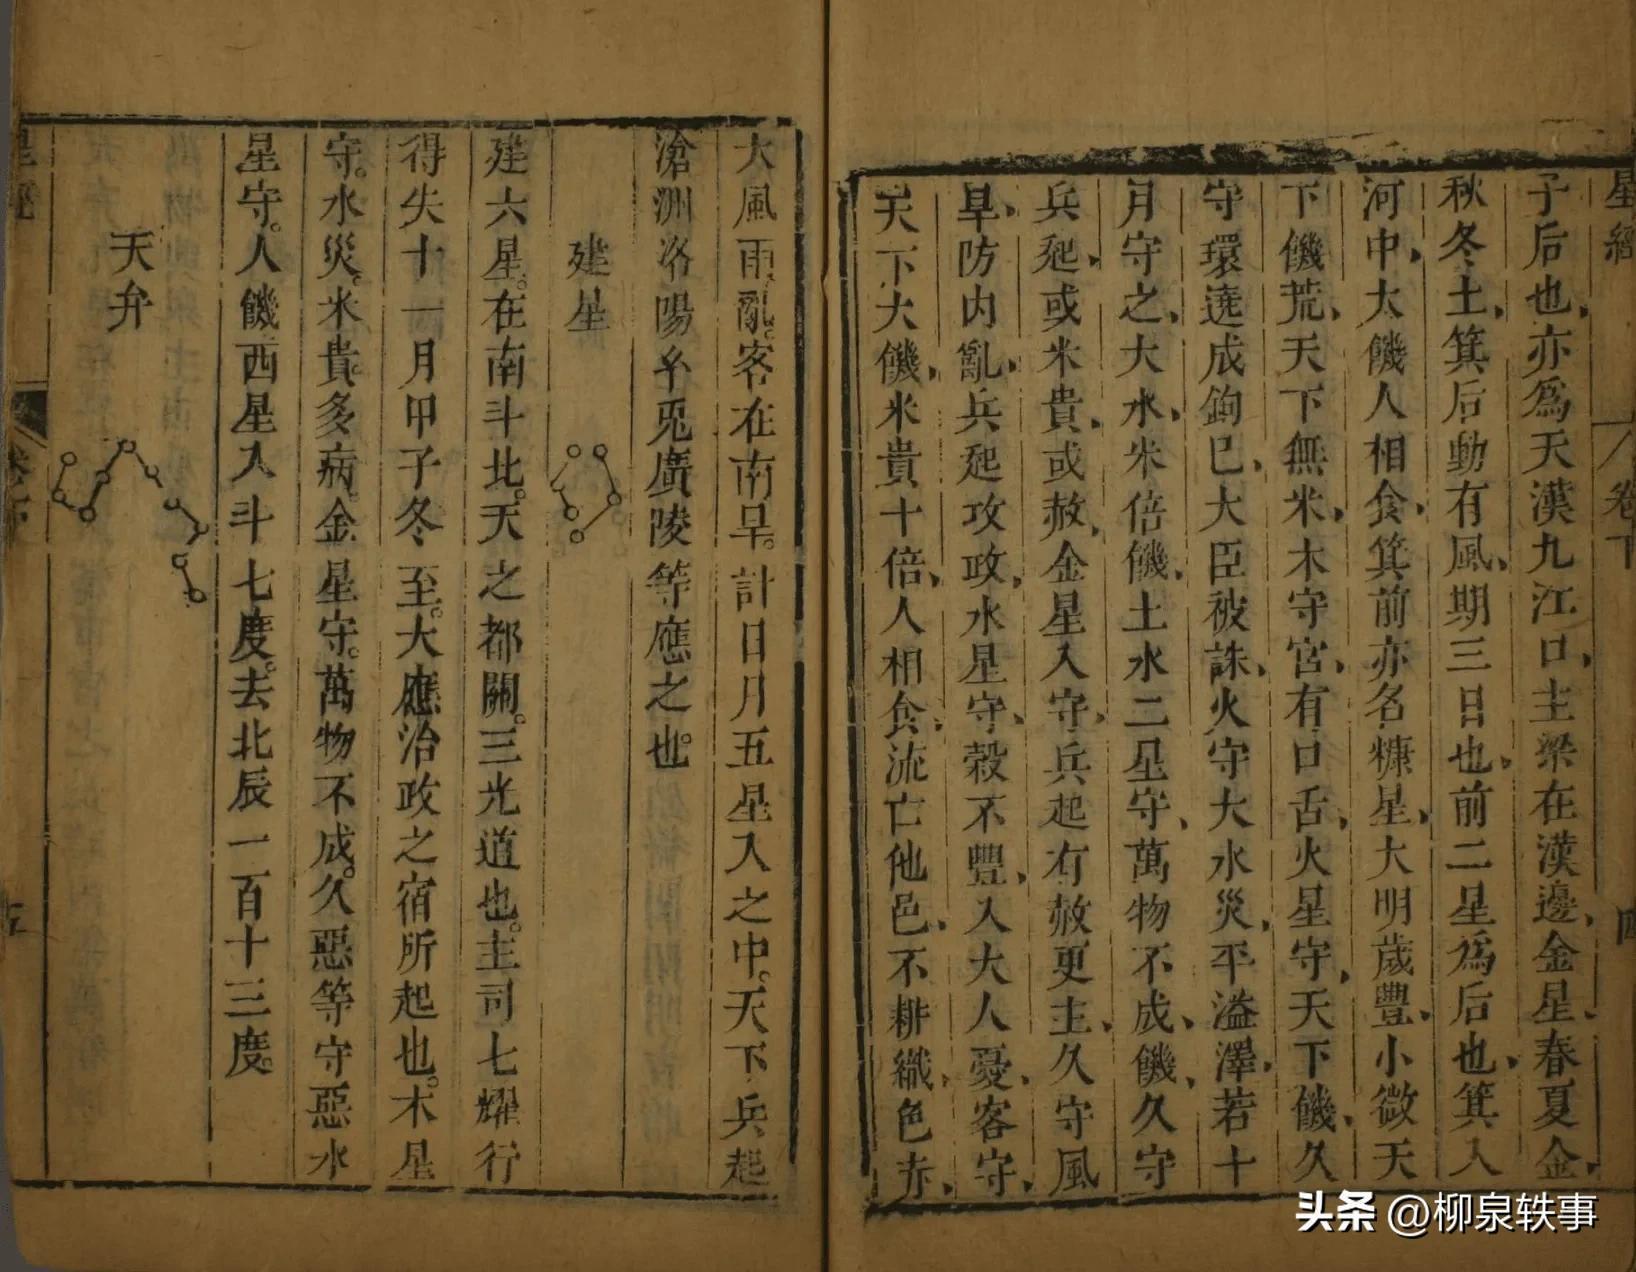 星經
卷下
四
子后也亦爲天漢九江口主梁在漢邊金星春夏金
秋冬土箕后動有風期三日也前二星爲后也箕入
河中大饑人相食箕前亦名糠星大明歲豐小微天
下饑荒天下無米木守宮有口舌火星守天下饑久
守環遶成鉤巳大臣被誅火守大水災平溢澤若十
月守之大水米倍饑土水二星守萬物不成饑久守
兵起或米貴或赦金星入守兵起有赦更主久守風
旱防內亂兵起攻政水星守穀不豐入大人憂客守
天下大饑米貴十倍人相食流亡他邑不耕織色赤
大風雨亂客在南旱計日月五星入之中天下兵起
滄洲洛陽糸兎廣陵等應之也
建星
建六星在南斗北天之都關三光道也主司七耀行
得失十一月甲子冬至大應治政之宿所起也木星
守水災米貴多病金星守萬物不成久惡等守惡水
星守人饑西星入斗七度去北辰一百十三度
天弁
星經
卷下
头条 @柳泉轶事